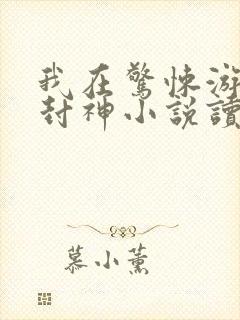 我在驚悚游
封神小說讀
慕小薰